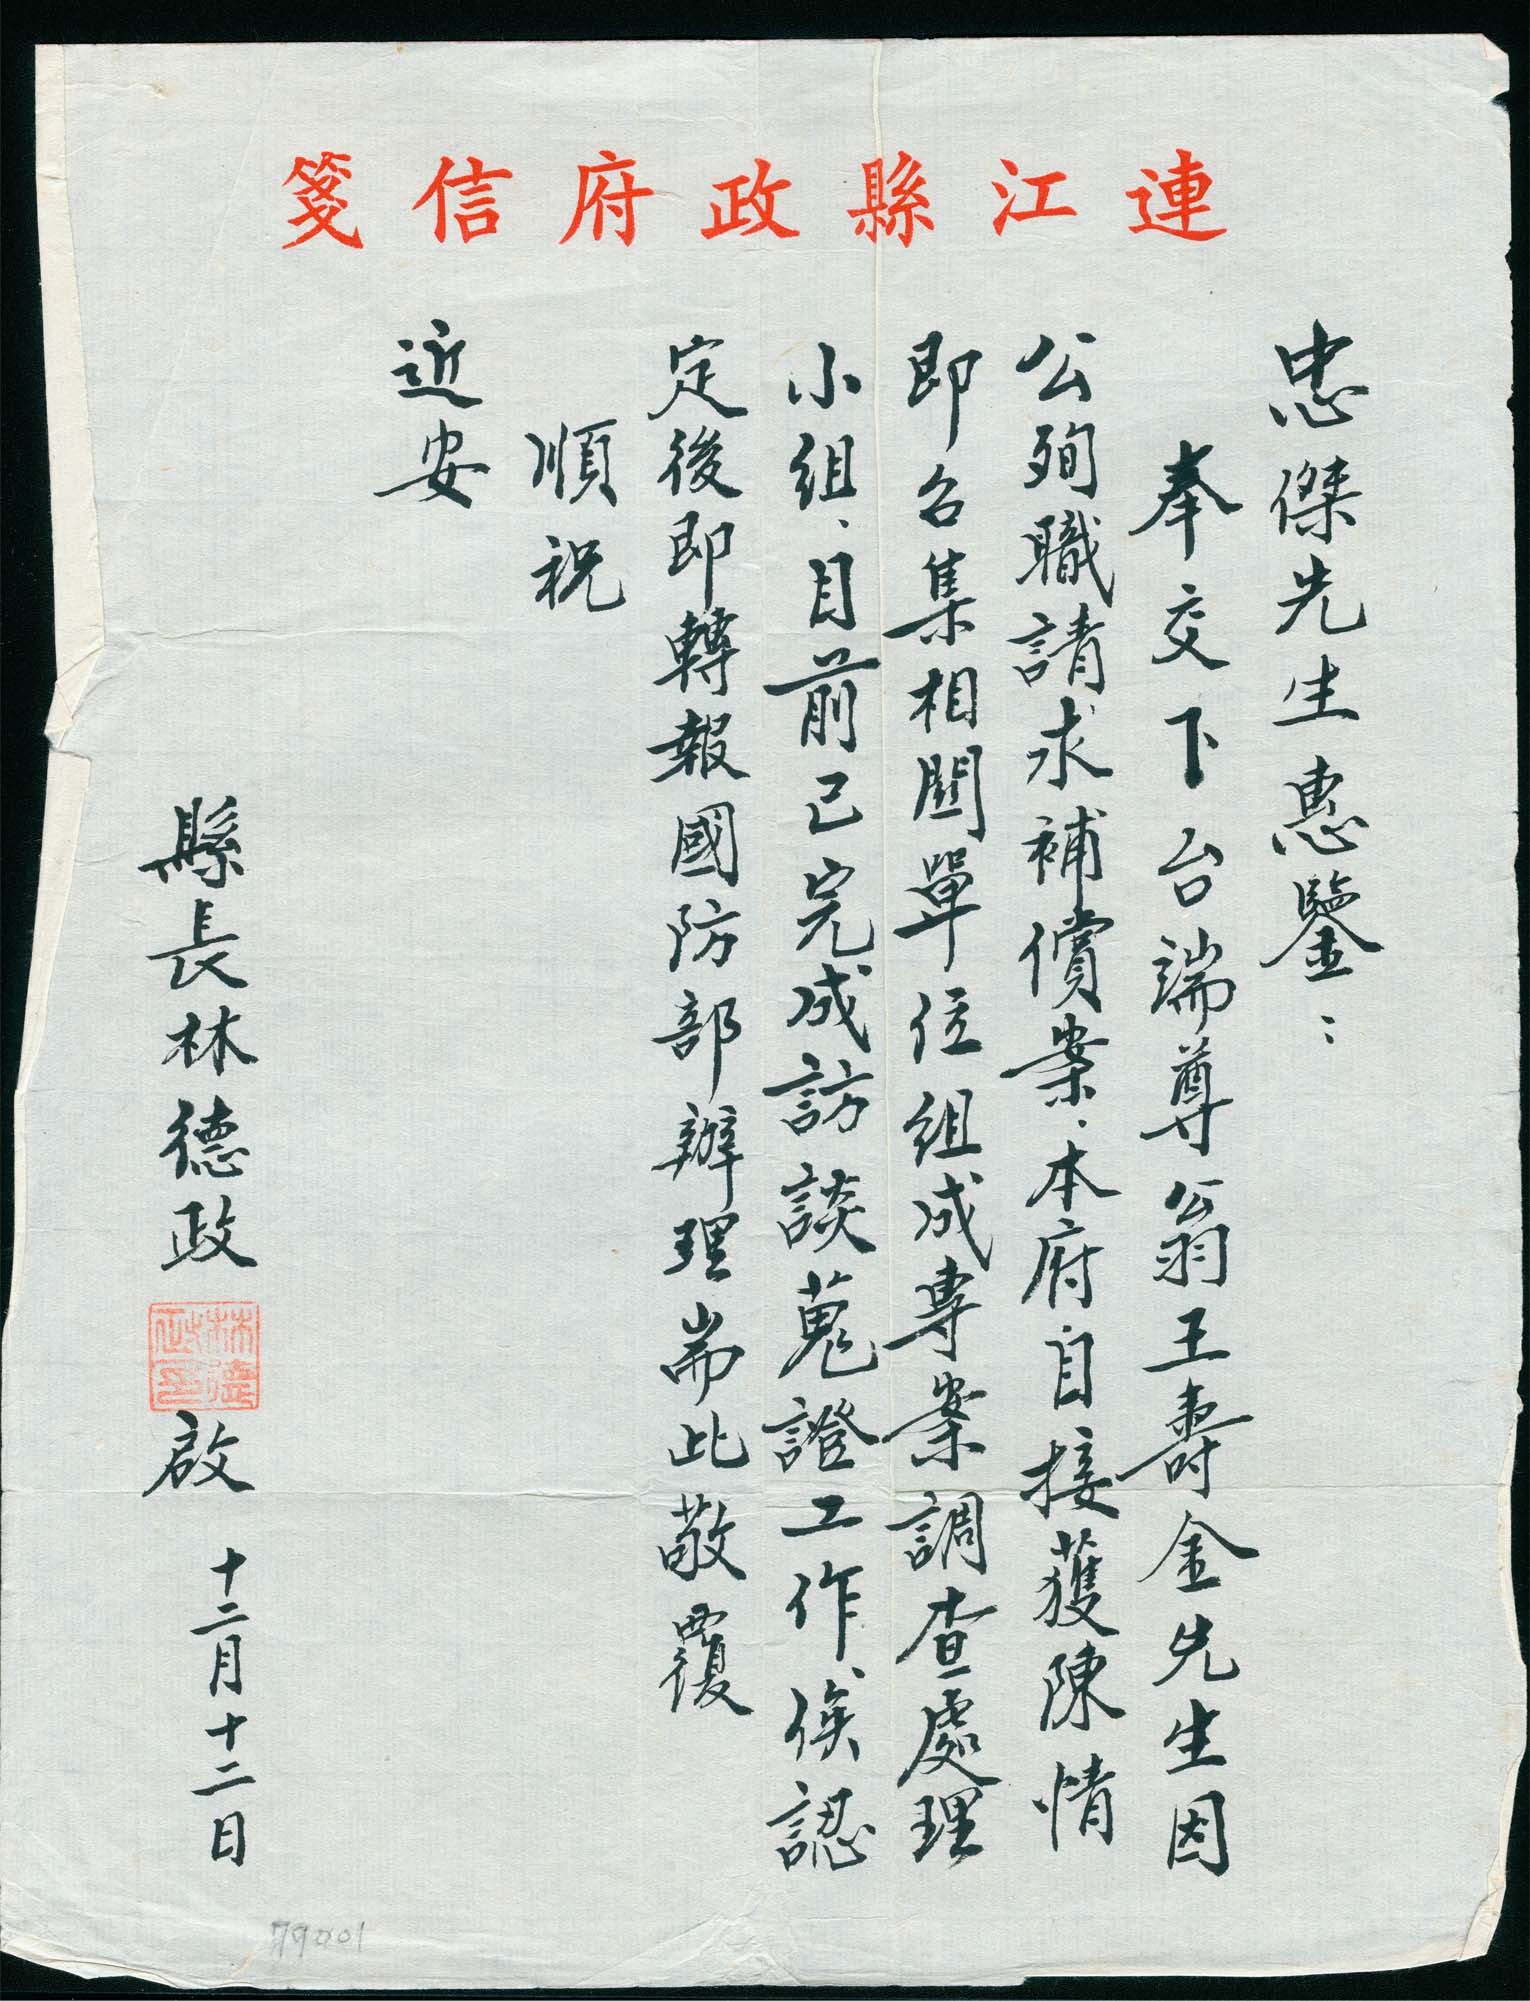 連江縣政府信箋
忠傑先生惠鑒：
奉交下台端尊翁王壽金先生因
公殉職請求補償案、本府自接獲陳情
即召集相關單位組成專案調查處理
小組、目前已完成訪談蒐證工作俟認
定後即轉報國防部辦理耑此敬覆
順祝
近安
縣長林德政
林德政印
啟
十二月十二日
79001